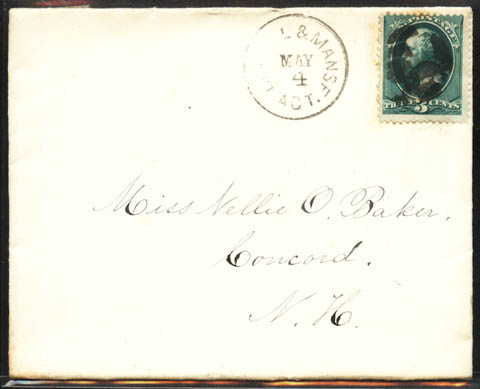 L & MANSF
MAY
4
AGT.
POSTAGE
CENTS
Miss Nellie O. Baker.
Concord.
N. H.